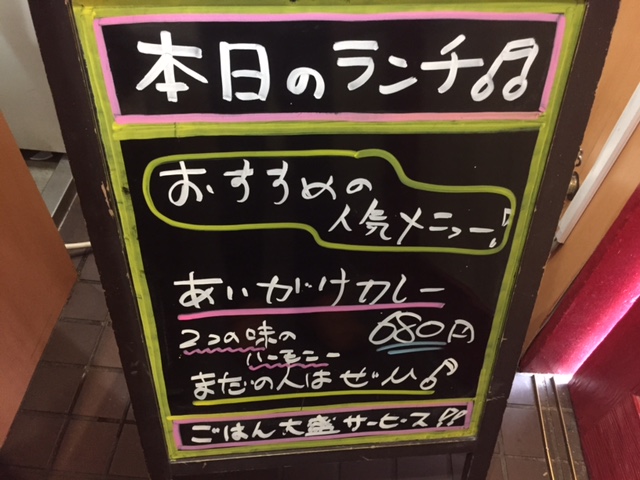 本日のランチ♫
おすすめの
人気メニュー♪
あいがけカレー
2つの味の
ハーモニー
680円
まだの人はぜひ♪
ごはん大盛サービス!!